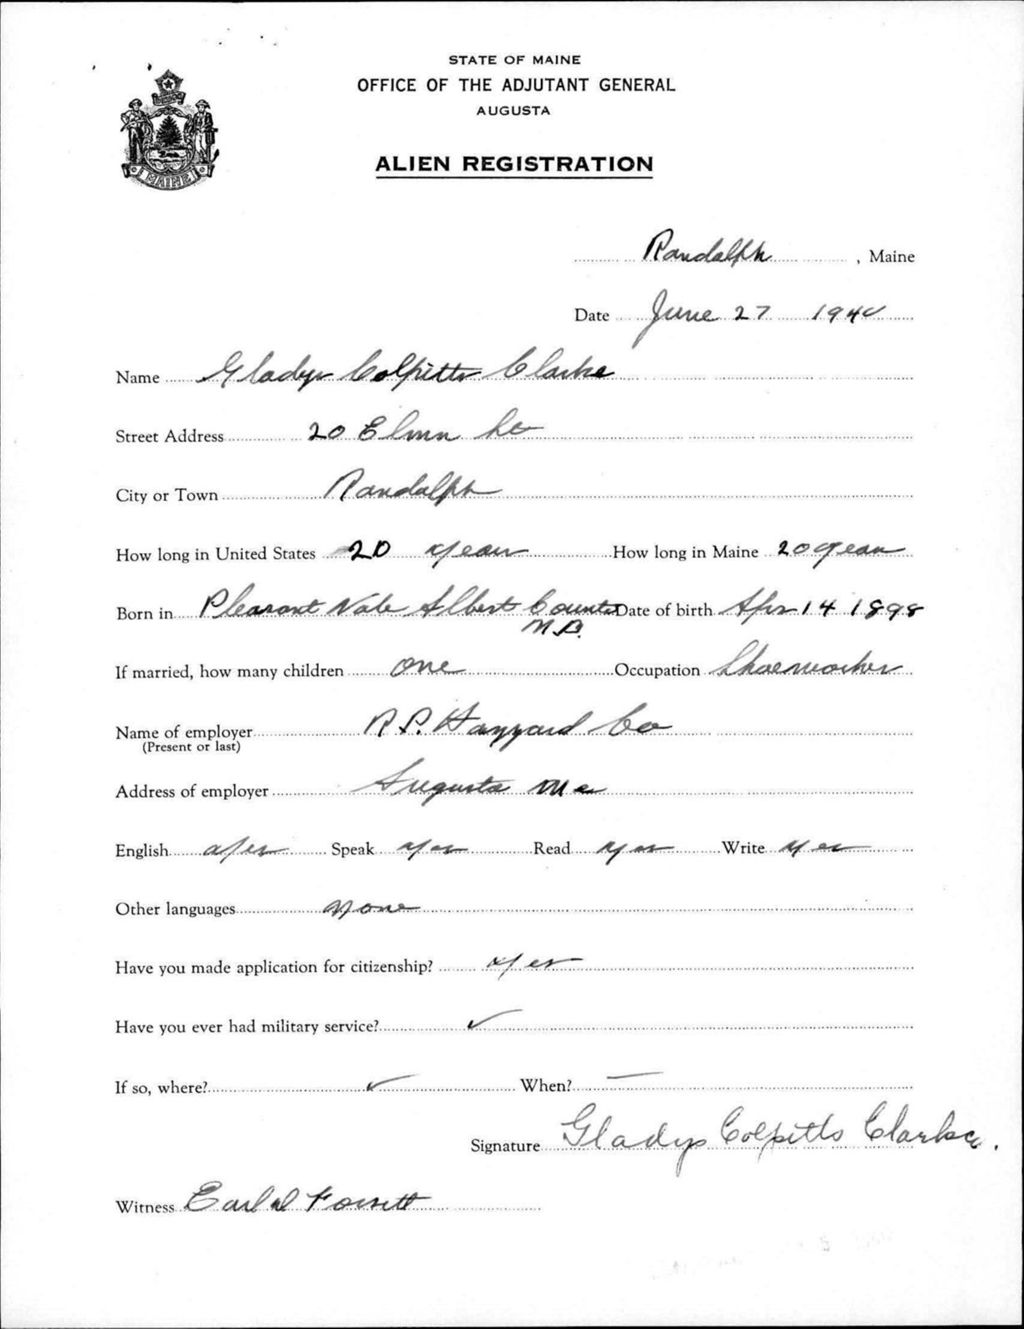 STATE OF MAINE
OFFICE OF THE ADJUTANT GENERAL
AUGUSTA
ALIEN REGISTRATION
MAINE
Randolph, Maine
Date June 27 1940
Name Gladys Colpitts Clarke
Street Address 20 Elm St
City or Town Randolph
How long in United States 20 years How long in Maine 20 years
Born in Pleasant Vale Albert County Date of birth Apr 14 1898
N.B.
If married, how many children one Occupation Shoeworker
Name of employer R.P. Hazzard Co
(Present or last)
Address of employer Augusta Me
English yes Speak yes Read yes Write yes
Other languages none
Have you made application for citizenship? yes
Have you ever had military service? ✓
If so, where? ✓ When? —
Signature Gladys Colpitts Clarke.
Witness Earl